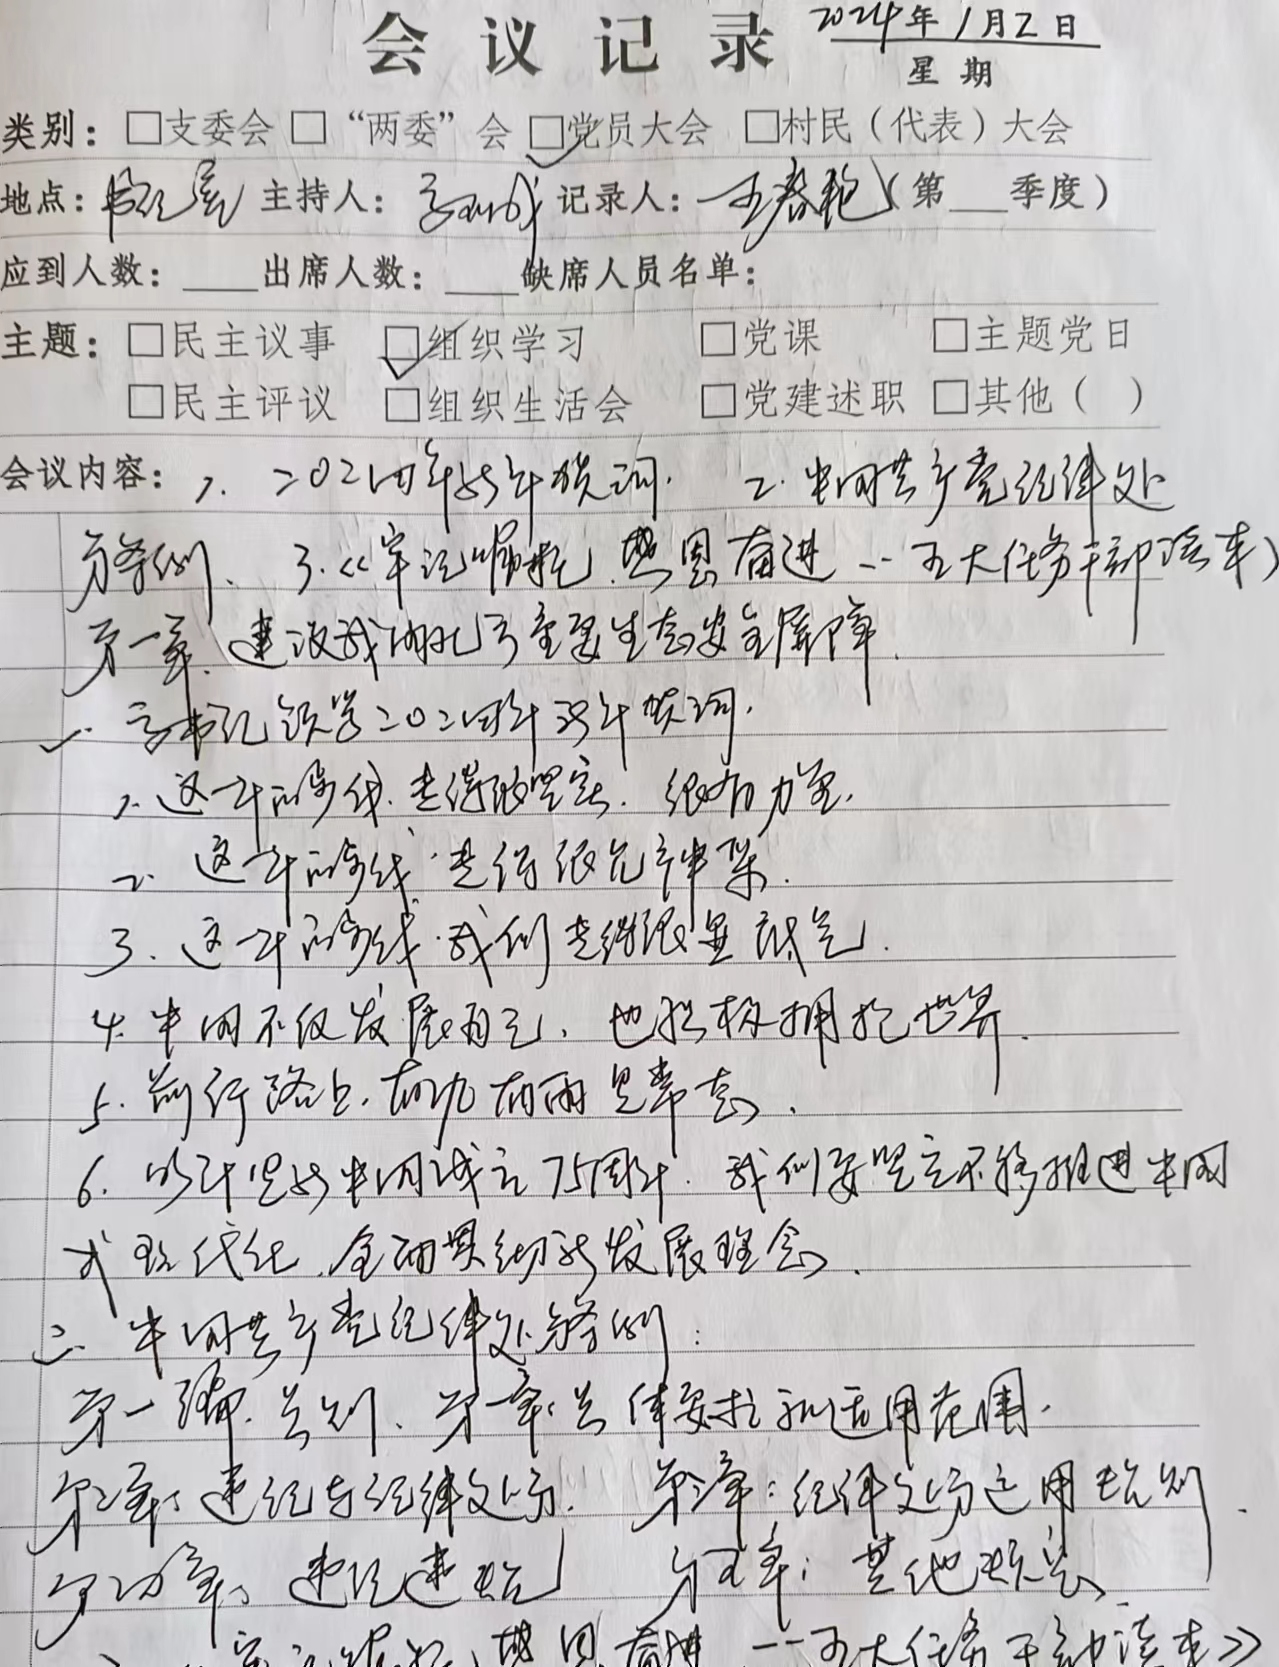 会议记录 2024年1月2日
星期
类别：□支委会 □“两委”会 □党员大会 □村民（代表）大会
地点：书记屋 主持人： 记录人：王春艳（第___季度）
应到人数：____出席人数：____缺席人员名单：
主题：□民主议事 □组织学习 □党课 □主题党日
□民主评议 □组织生活会 □党建述职 □其他（ ）
会议内容：1. 二〇二四年新年贺词. 2. 中国共产党纪律处
分条例、3.《牢记嘱托、感恩奋进--五大任务干部读本》
第一章、建设我国北方重要生态安全屏障.
一. 书记领学二〇二四年新年贺词.
1. 这一年的步伐.走得很坚实.很有力量.
2. 这一年的步伐.走得很 神采.
3. 这一年的步伐.我们走得很显底气.
4. 中国不仅发展自己，也积极拥抱世界.
5. 前行路上，有风有雨是常态.
6. 明年是新中国成立75周年. 我们要坚定不移推进中国
式现代化，全面贯彻新发展理念.
二. 中国共产党纪律处分条例：
第一编.总则、第一章：总体要求和适用范围.
第二章：违纪与纪律处分. 第三章：纪律处分运用规则.
第四章、违法 第五章：其他规定
牢记嘱托、感恩奋进--五大任务干部读本》